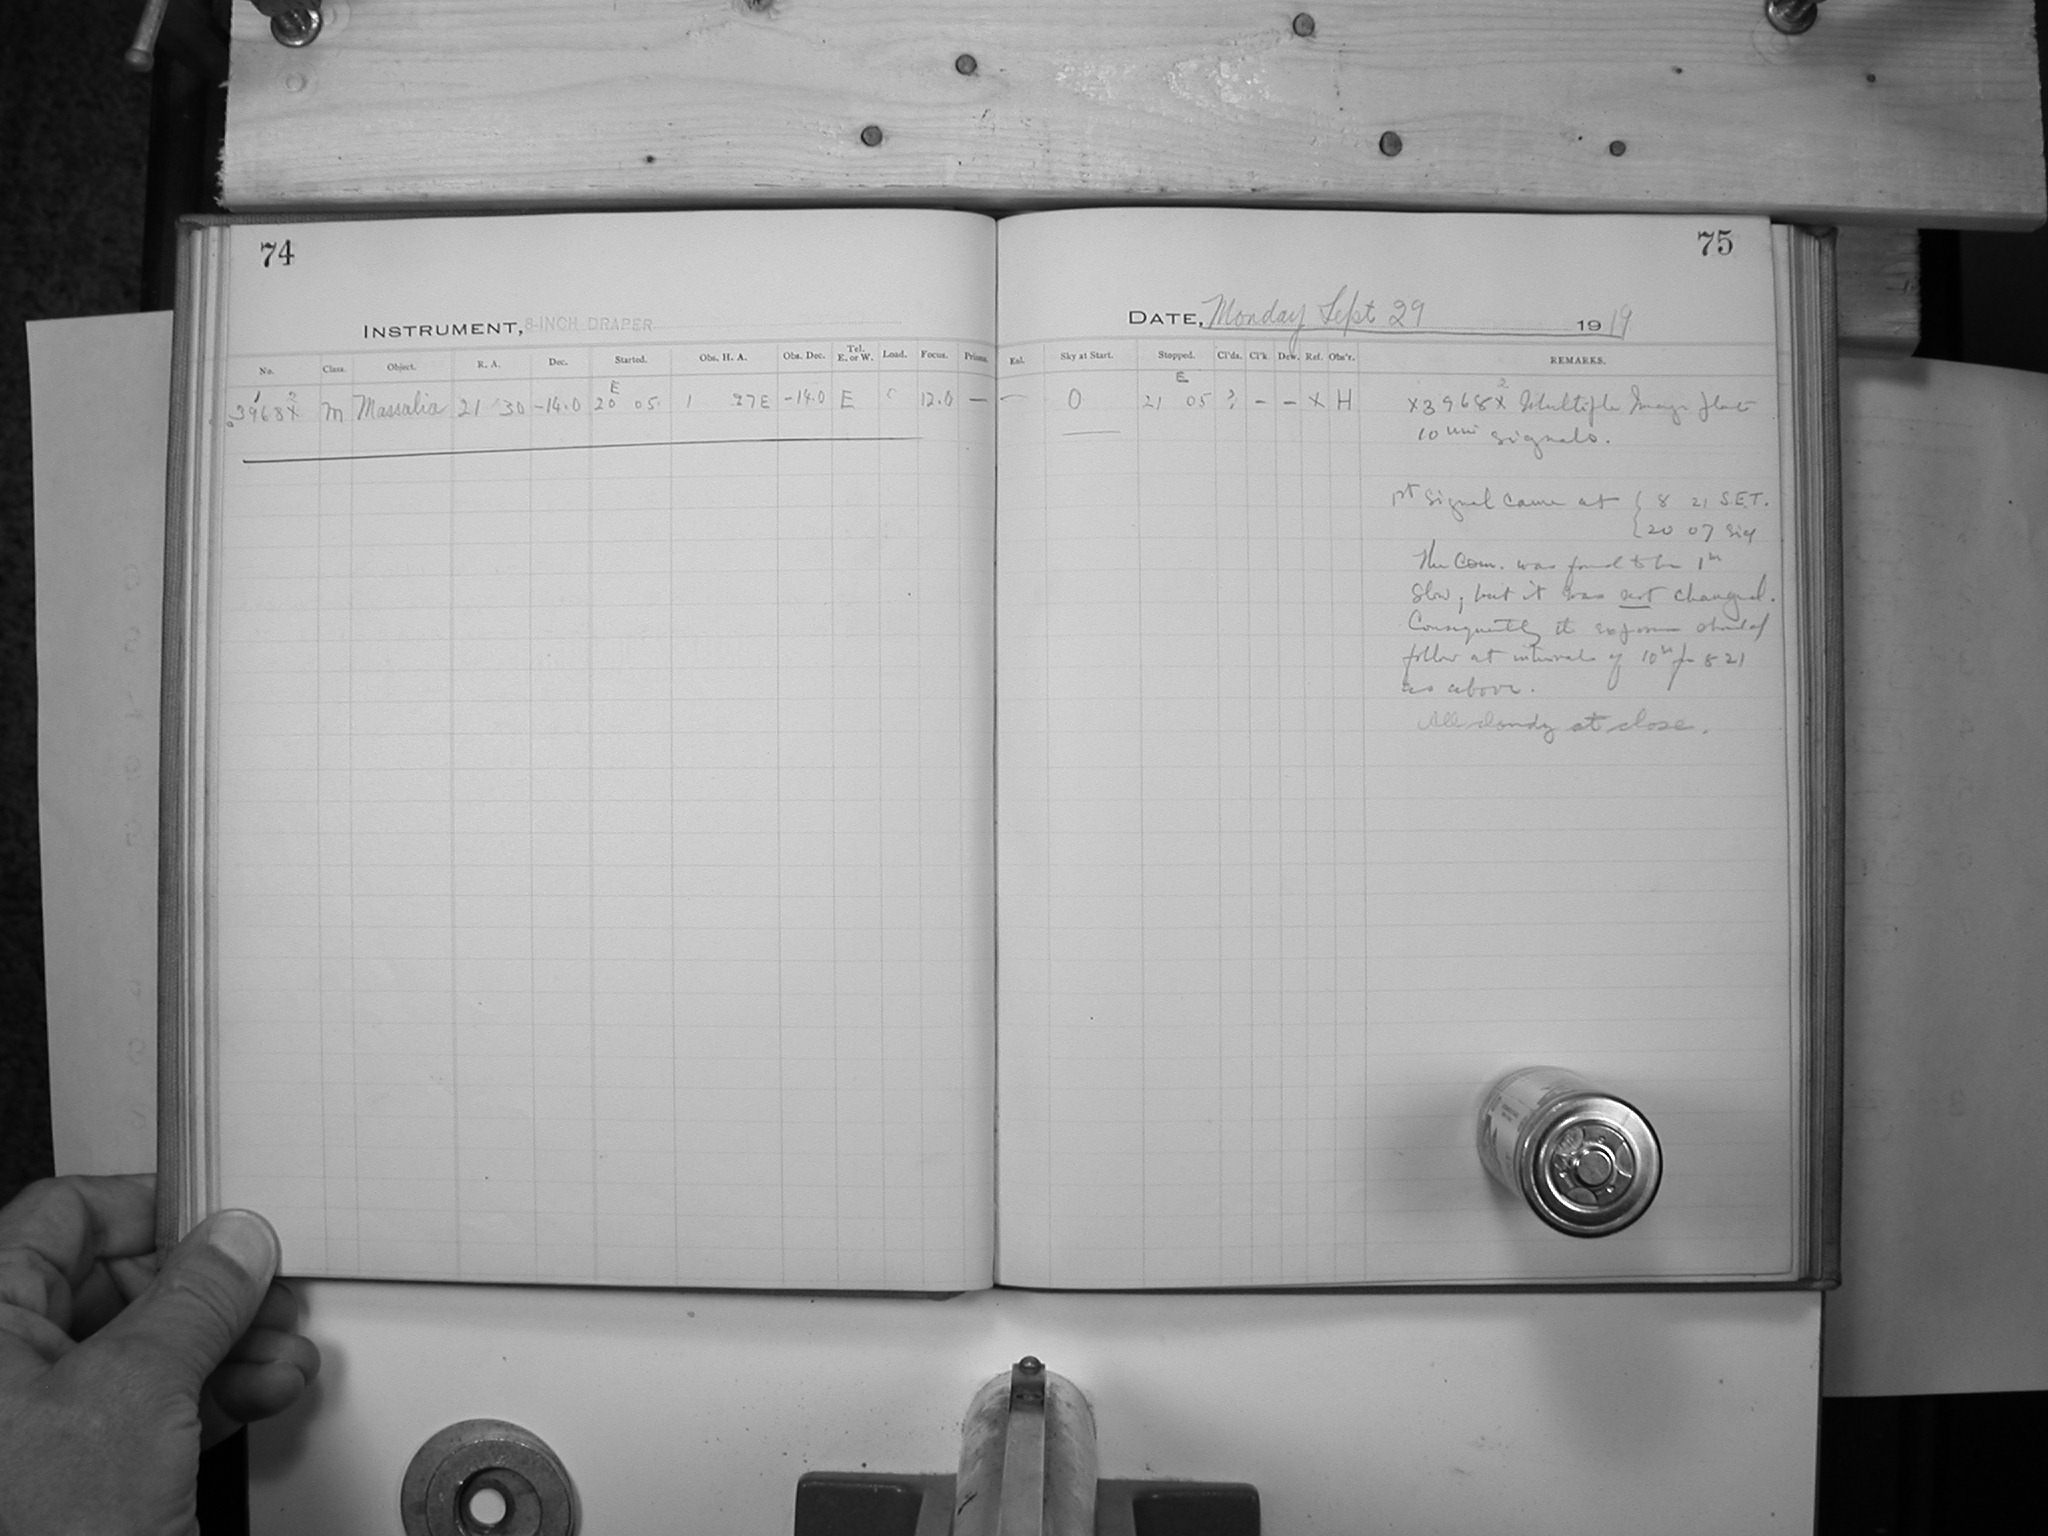 74
75
INSTRUMENT, 8-INCH DRAPER
DATE, Monday Sept 29 1919
No. Class. Object. R. A. Dec. Started. Obs. H. A. Obs. Dec. Tel. E. or W. Load. Focus. Prisms. Eal. Sky at Start. Stopped. Cl'ds. Cl'k. Dew. Ref. Obs'r. REMARKS.
M Massalia 21 30 -14.0 E 20 05 1 27E -14.0 E 12.0 — — 0 E 21 05 - - X H
Multiple Image plate
10 min signals.
1st signal came at { 8 21 S.E.T.
{ 20 07 Sid
The Com. was found to be 1m
slow, but it was not changed.
Consequently exposures should
follow at intervals of 10m 8 21
as above.
All cloudy at close.